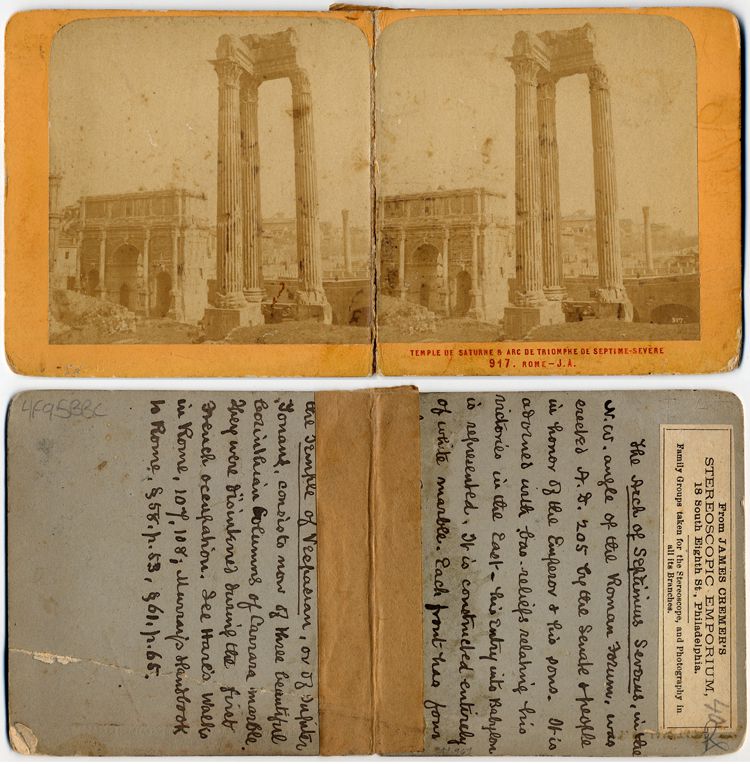 TEMPLE DE SATURNE & ARC DE TRIOMPHE DE SEPTIME-SEVÈRE
917. ROME—J.A.
From JAMES CREMER'S
STEREOSCOPIC EMPORIUM,
18 South Eighth St., Philadelphia.
Family Groups taken for the Stereoscope, and Photography in
all its Branches.
The Arch of Septimius Severus, in the
N.W. angle of the Roman Forum, was
erected A.D. 205 by the Senate & people
in honor of the Emperor & his sons. It is
adorned with bas-reliefs relating his
victories in the East - his Entry into Babylon
is represented. It is constructed entirely
of white marble. Each front has four
the Temple of Vespasian, or of Jupiter
Tonans, consists now of three beautiful
Corinthian Columns of Carrara marble.
They were disinterred during the first
French occupation. See Hare's Walks
in Rome, 107, 108; Murray's Handbook
to Rome, § 58. p. 53, § 61. p. 65.
4F95BBC